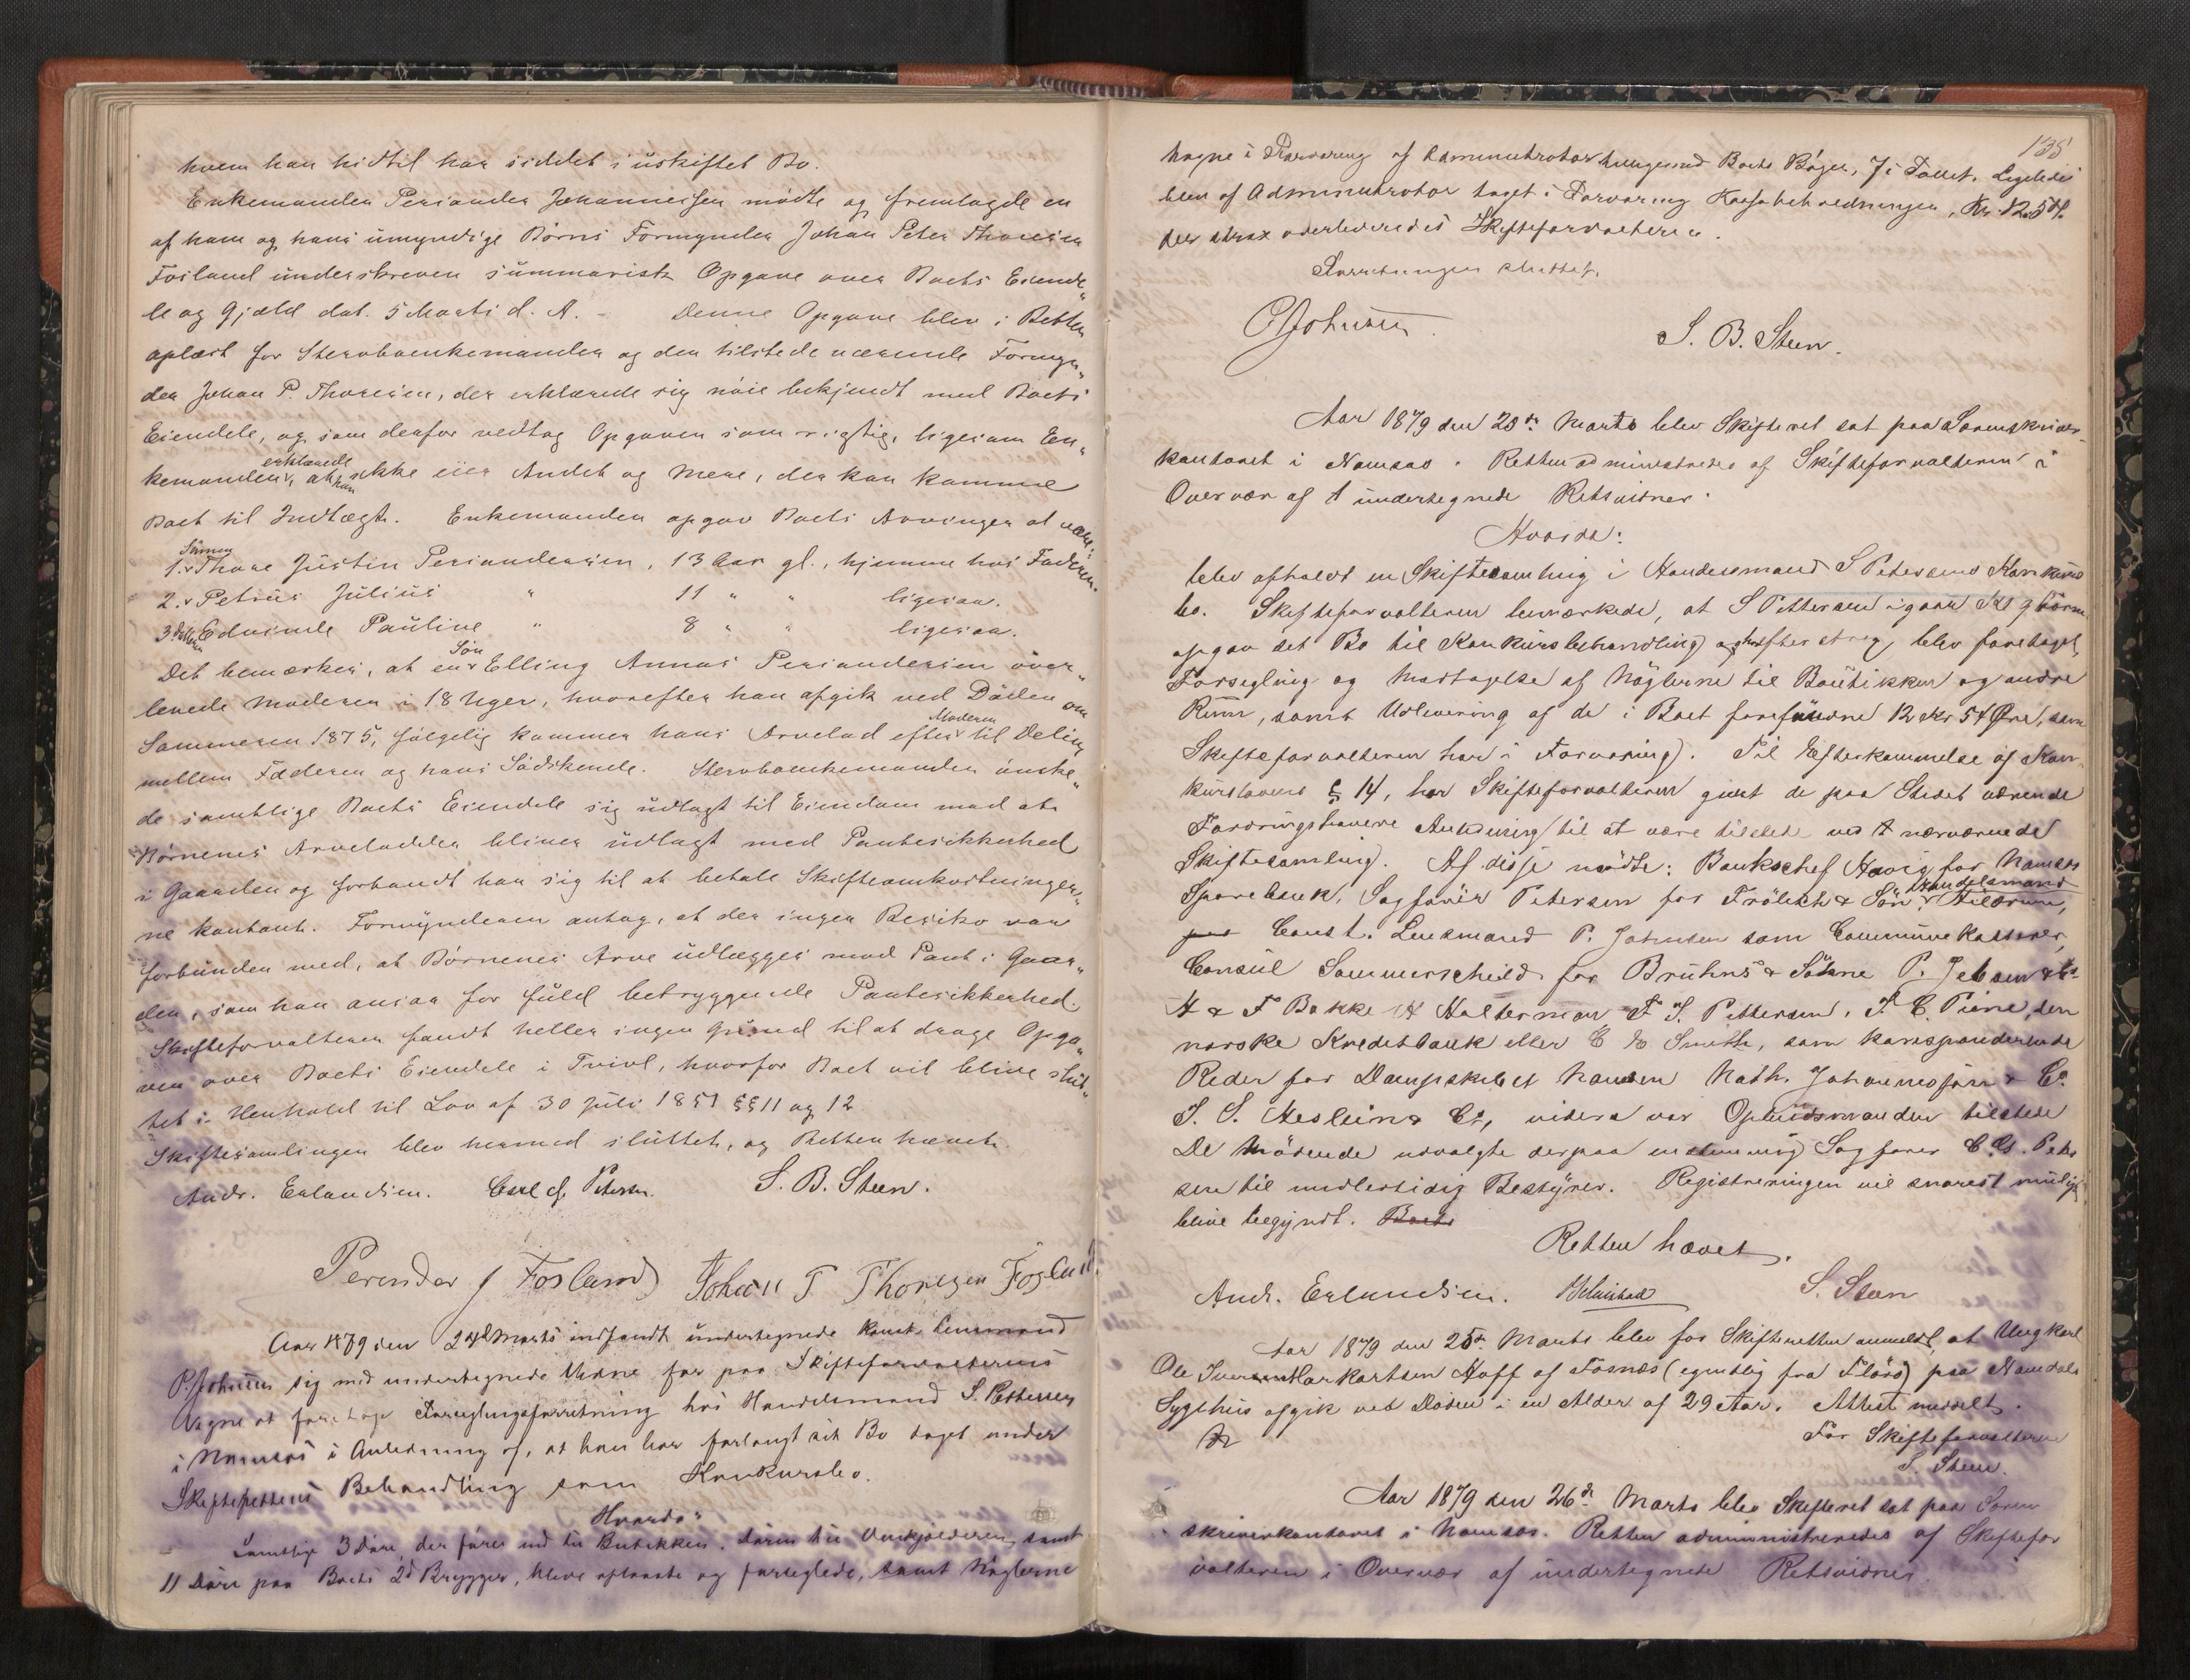 hvem han hidtil har siddet i uskiftet Bo.
Enkemanden Periander Johannessen mødte og fremlagde en
af ham og hans umyndige Børns Formynder Johan Peter Thoresen
Fosland underskreven summarisk Opgave over Boets Eiende„
le og Gjæld dat. 5 Marts d. A. – Denne Opgave blev i Retten
oplæst for Stervboenkemanden og den tilstedeværende Formyn„
der Johan P. Thoresen, der erklærede sig nøie bekjendt med Boets
Eiendele, og som derfor vedtog Opgaven som rigtig, ligesom En„
kemanden erklærede, at han ikke eier Andet og Mere, der kan komme
Boet til Indtægt. Enkemanden opgav Boets Arvinger at være:
1. Sønnen Thore Justin Periandersen, 13 Aar gl., hjemme hos Faderen.
2. " Petrus Julius " 11 " " ligesaa.
3. Datteren Edvinde Pauline " 8 " " ligesaa.
Det bemærkes, at en Søn Elling Annas Periandersen over„
levede Moderen i 18 Uger, hvorefter han afgik ved Døden om
Sommeren 1875, følgelig kommer hans Arvelod efter Moderen til Deling
mellem Faderen og hans Sødskende. Stervboenkemanden ønske„
de samtlige Boets Eiendele sig udlagt til Eiendom mod at
Børnenes Arvelodder bliver udlagt med Pantesikkerhed
i Gaarden og forbandt han sig til at betale Skifteomkostninger„
ne kontant. Formynderen antog, at der ingen Resiko var
forbunden med, at Børnenes Arve udlægges mod Pant i Gaar„
den, som han ansaa for fuld betryggende Pantesikkerhed.
Skifteforvalteren fandt heller ingen Grund til at drage Opga„
ven over Boets Eiendele i Tvivl, hvorfor Boet vil blive slut„
tet i Henhold til Lov af 30 Juli 1851 §§ 11 og 12
Skiftesamlingen blev hermed sluttet, og Retten hævet.
Andr. Erlandsen. Carl J. Petersen. S. B. Steen.
Perinder J Fosland Johan P Thoresen Fosland
Aar 1879 den 24de Marts indfandt undertegnede Konst. Lensmand
P. Johnsen sig med undertegnede Vidne for paa Skifteforvalterens
Vegne at foretage Forseglingsforretning hos Handelsmand S. Pettersen
i Namsos i Anledning af, at han har forlangt sit Bo taget under
Skifterettens Behandling som Konkursbo.
Hvorda:
Samtlige 3 Døre, der fører ind til Butikken, Døren til Ølkjælderen samt
11 Døre paa Boets 2de Brygger, bleve aflaaste og forseglede, samt Nøglerne
138
tagne i Forvaring af Administrator tilligemed Boets Bøger, 7 i Tallet. Ligeledes
blev af Administrator taget i Forvaring Kassabeholdningen, Kr. 12.54,
der strax overleveredes Skifteforvalteren.
Forretningen sluttet.
P Johnsen. S. B. Steen.
Aar 1879 den 25de Marts blev Skifteret sat paa Sorenskriver„
kontoret i Namsos. Retten administreredes af Skifteforvalteren i
Overvær af undertegnede Retsvidner.
Hvorda:
blev afholdt en Skiftesamling i Handelsmand S Petersens Konkurs
bo. Skifteforvalteren bemærkede, at S Pettersen igaar
opgav sit Bo til Konkursbehandling og efter strax blev foretaget
Forsegling og Modtagelse af Nøglerne til Boutikken og andre
Rum, samt Udlevering af de i Boet forefundne 12 Kr 54 Øre, som
Skifteforvalteren har i Forvaring. Til Efterkommelse af Kon„
kurslovens § 14, har Skifteforvalteren givet de paa Stedet værende
Fordringshavere Anledning til at være tilstede ved nærværende
Skiftesamling. Af disse mødte: Bankschef Havig for Namsos
Sparebank, Sagfører Petersen for Frölich & Søn, Handelsmand
Const. Lensmand P. Johnsen som Communekasserer,
Consul Sommerschield for Bruhns & Söhne P. Jebsen & Co
H & F Bakke H Haltermar F S. Pettersen, T. C. Piene, den
norske Kreditbank eller C E Smith, som korresponderende
Reder for Dampskibet Namsen Nath. Johannesson & Co
J. S. Hesleim & Co, videre var Opbudsmanden tilstede
De Mødende udvalgte derpaa enstemmig Sagfører C. G. Peter
sen til midlertidig Bestyrer. Registreringen vil snarest muligt
blive begyndt.
Retten hævet.
Andr. Erlandsen. S. Steen
Aar 1879 den 25de Marts blev for Skifteretten anmeldt, at Ungkarl
Ole Iversen Markortsen Hoff af Fosnæs (egentlig fra Florø) paa Namdals
Sygehus afgik ved Døden i en Alder af 29 Aar. Attest meddelt.
For Skifteforvalteren
S. Steen.
Aar 1879 den 26de Marts blev Skifteret sat paa Soren
skriverkontoret i Namsos. Retten administreredes af Skiftefor
valteren i Overvær af undertegnede Retsvidner